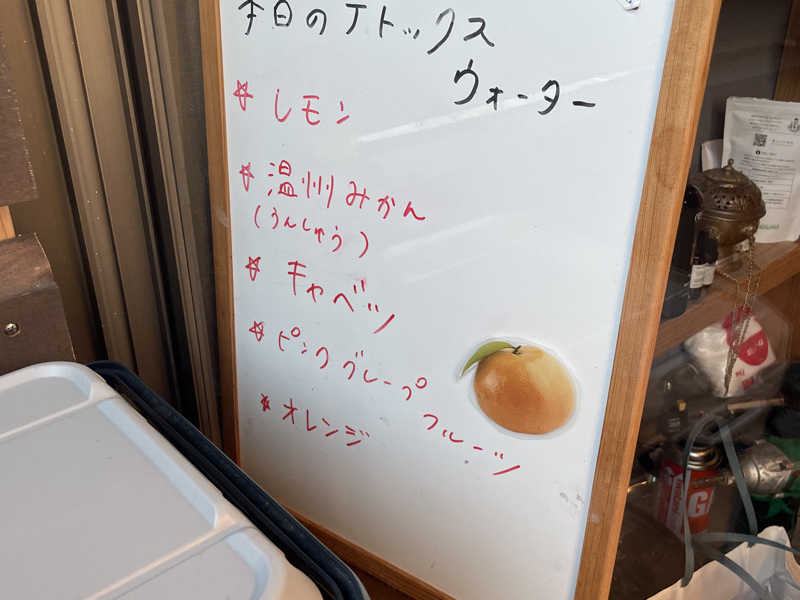 本日のデトックス
ウォーター
☆ レモン
☆ 温州みかん
(うんしゅう)
☆ キャベツ
☆ ピンクグレープ
フルーツ
☆ オレンジ